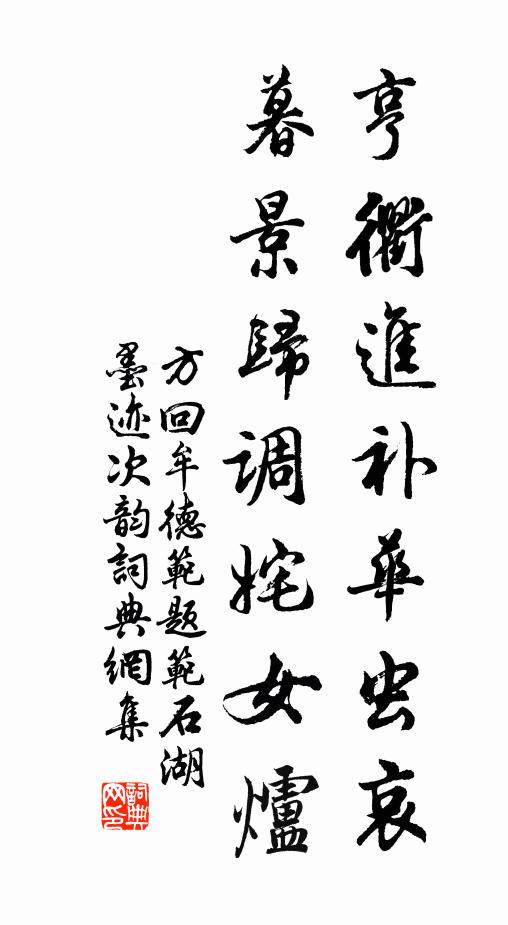 亨衢進补華虫哀
暮景歸調姹女爐
方回牟德範题範石湖
墨迹次韵詞典網集
詞典网印